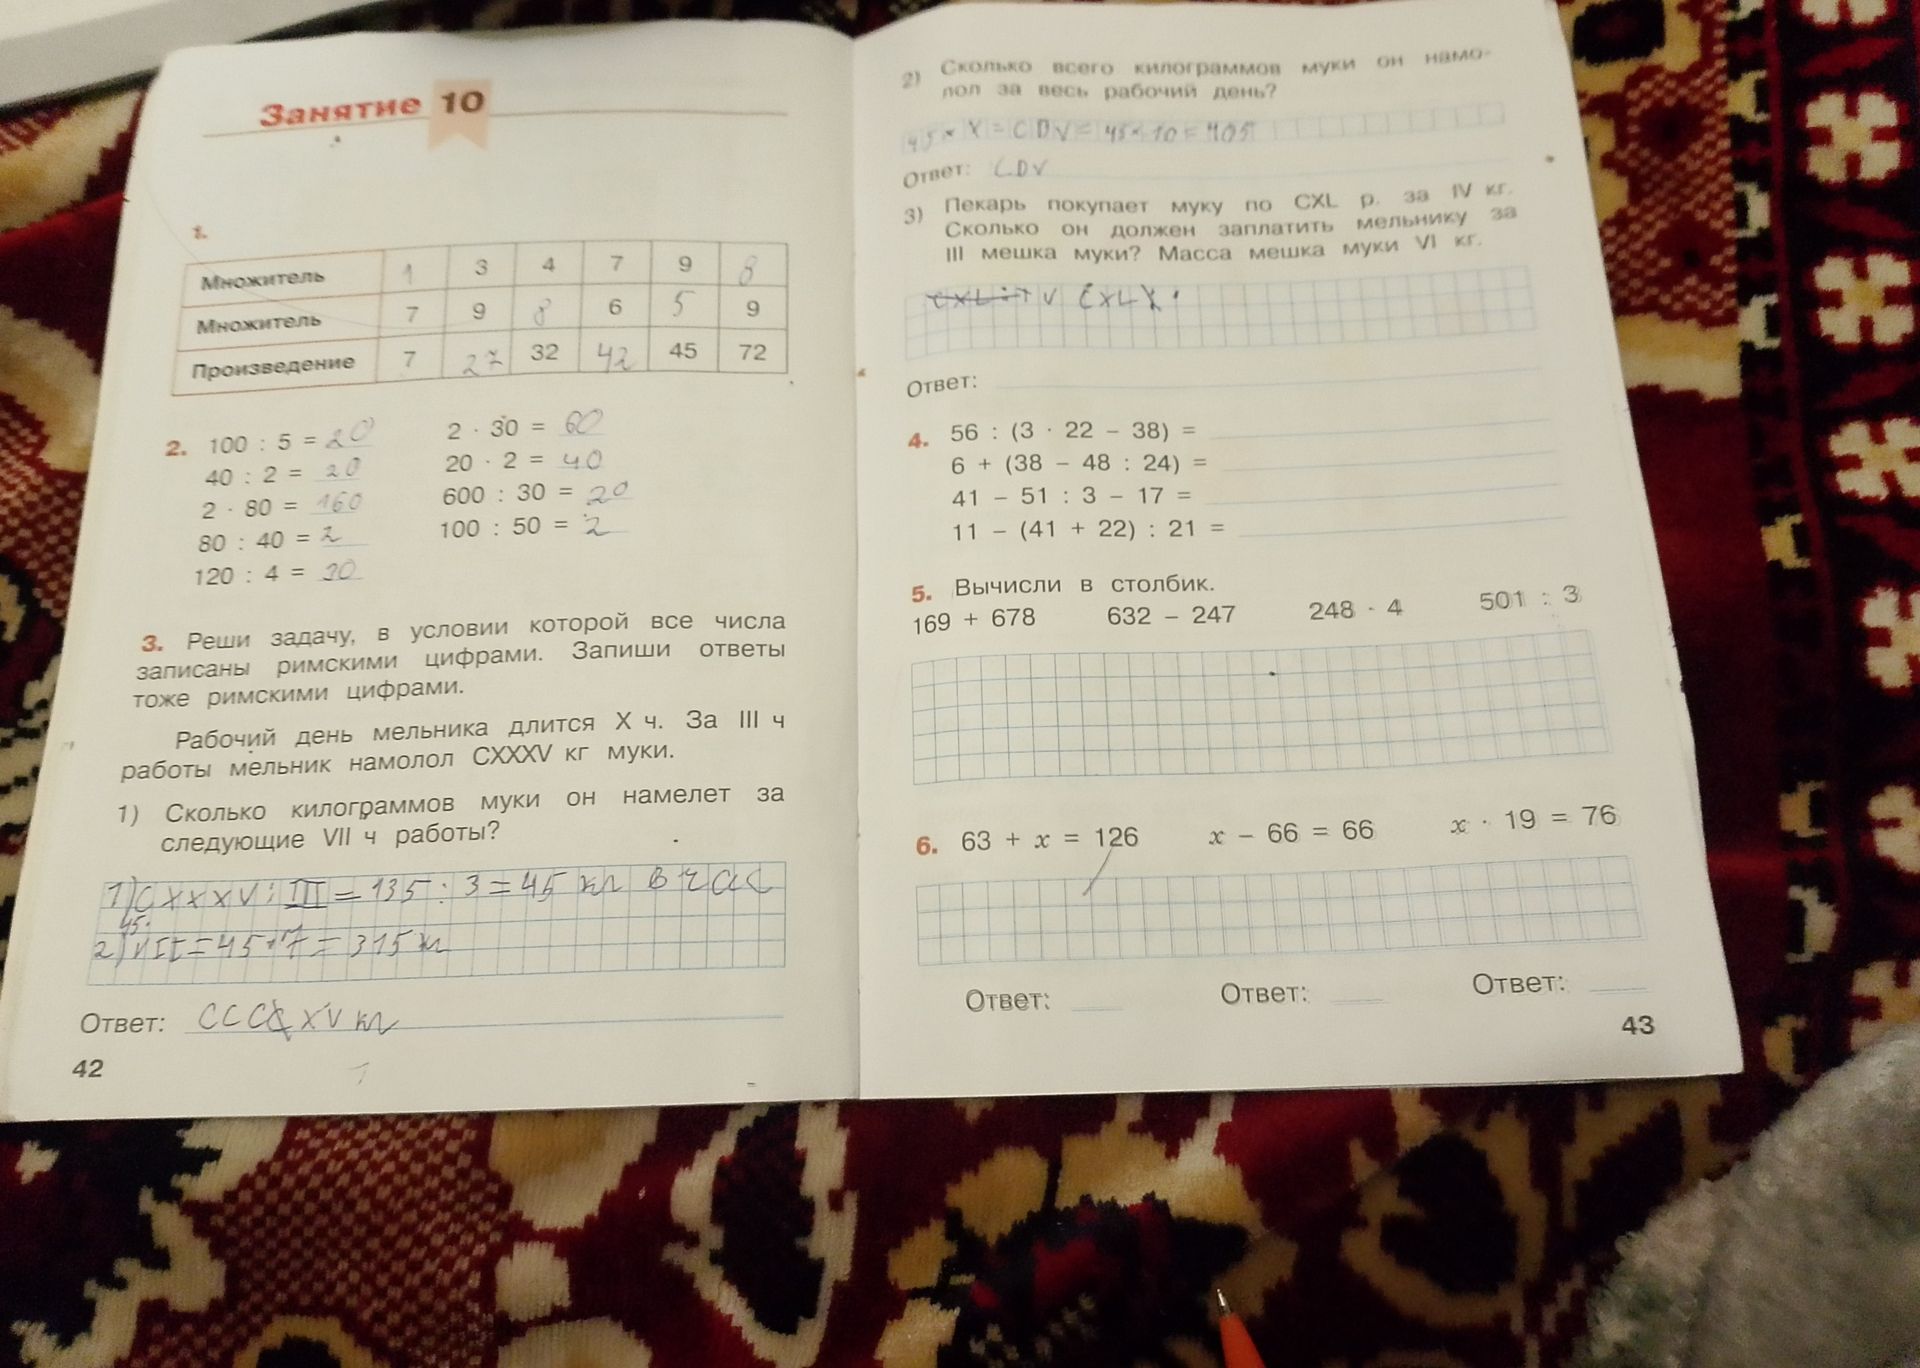 Занятие 10
1.
Множитель 1 3 4 7 9 8
Множитель 7 9 8 6 5 9
Произведение 7 27 32 42 45 72
2. 100 : 5 = 20
40 : 2 = 20
2 · 80 = 160
80 : 40 = 2
120 : 4 = 30
2 · 30 = 60
20 · 2 = 40
600 : 30 = 20
100 : 50 = 2
3. Реши задачу, в условии которой все числа
записаны римскими цифрами. Запиши ответы
тоже римскими цифрами.
Рабочий день мельника длится X ч. За III ч
работы мельник намолол CXXXV кг муки.
1) Сколько килограммов муки он намелет за
следующие VII ч работы?
1) CXXXV : III = 135 : 3 = 45 кг в час
45·
2) VII = 45 · 7 = 315 кг
Ответ: CCC XV кг
42
2) Сколько всего килограммов муки он намо-
лол за весь рабочий день?
45 × X = CDV = 45 × 10 = 405
Ответ: CDV
3) Пекарь покупает муку по CXL р. за IV кг.
Сколько он должен заплатить мельнику за
III мешка муки? Масса мешка муки VI кг.
CXL : I V CXL
Ответ:
4. 56 : (3 · 22 – 38) =
6 + (38 – 48 : 24) =
41 – 51 : 3 – 17 =
11 – (41 + 22) : 21 =
5. Вычисли в столбик.
169 + 678 632 – 247 248 · 4 501 : 3
6. 63 + x = 126 x – 66 = 66 x · 19 = 76
Ответ: Ответ: Ответ:
43